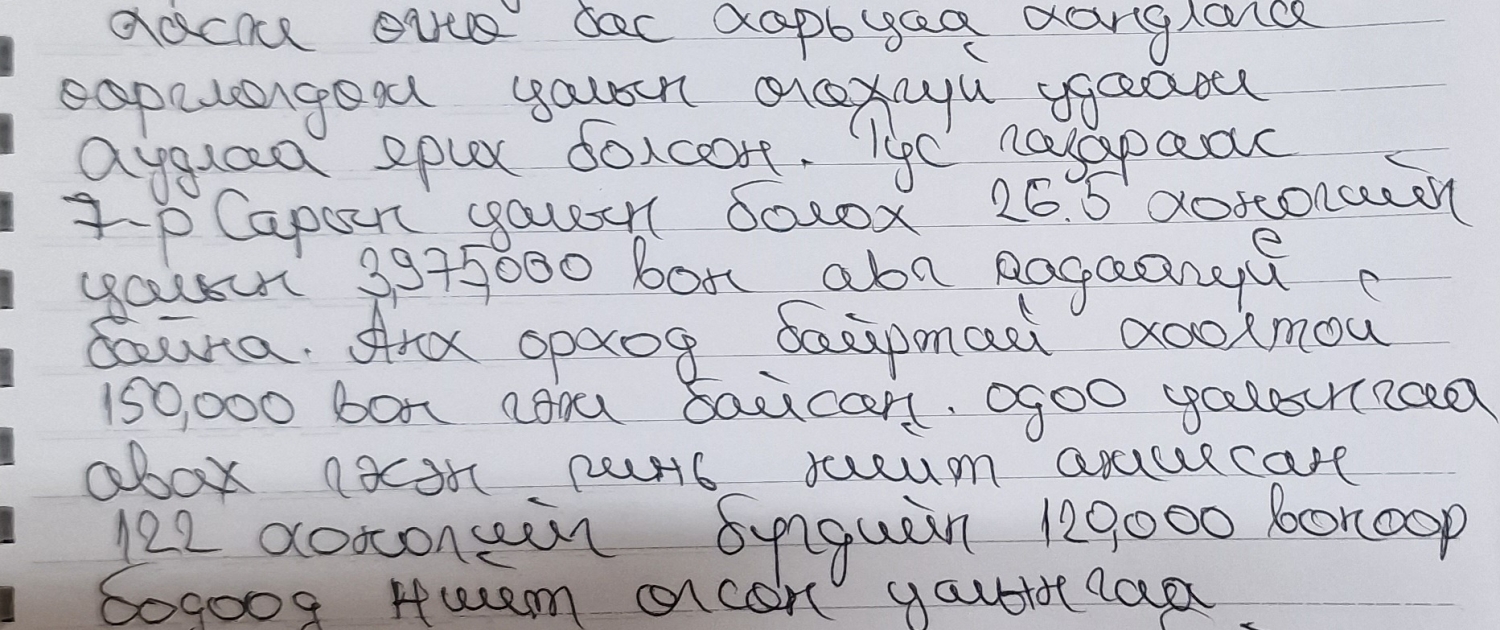 бас харьцаа хандлага
цалын олохгүй удаан
ярих болсон. Тус газараас
7-р Сарын цалын болох 26.5 хоногийн
цалын 3,975,000 вон авч чадаагүй
байна. Анх ороход байртай хоолтой
150,000 вон гэж байсан. одоо цалынгаа
авах гэхэн чинь нийт ажилсан
122 хоногийн бүгдийн 120,000 воноор
бодоод Нийт олсон цалынгаа